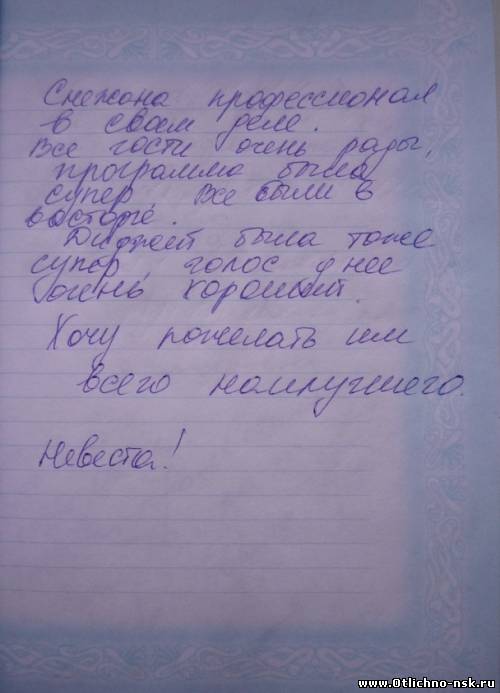 Снежана профессионал
в своем деле.
Все гости очень рады,
программа была
супер, Все были в
восторге.
Диджей была тоже
супер, голос у нее
очень хороший.
Хочу пожелать им
всего наилучшего.
Невеста!
www.Otlichno-nsk.ru